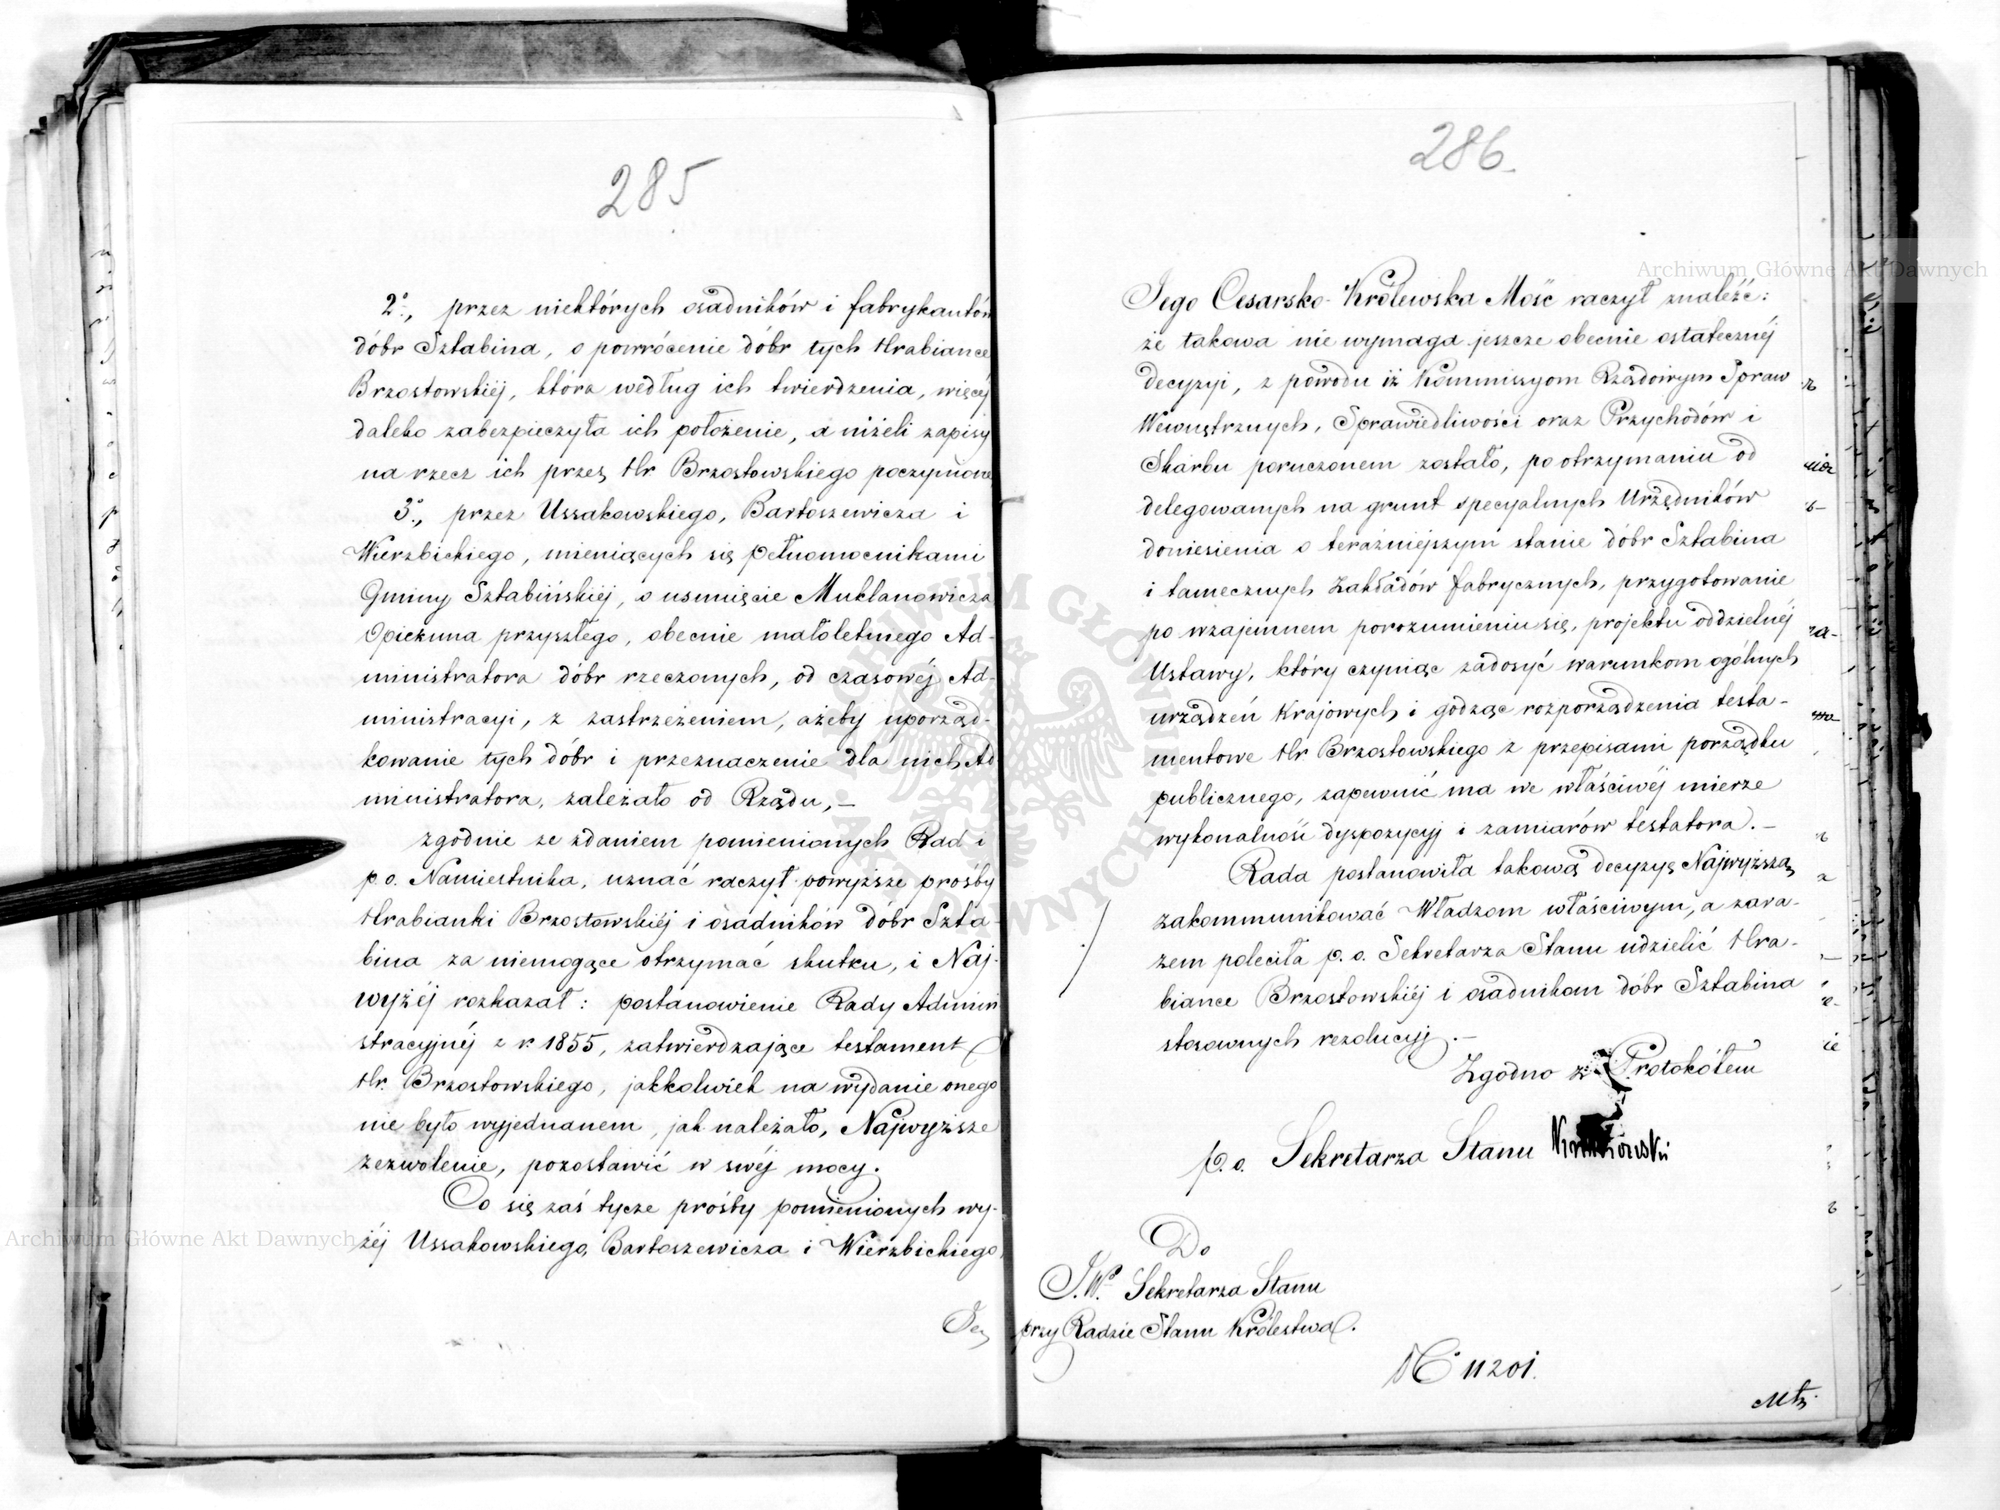 285
2º, przez niektórych osadników i fabrykantów
dóbr Sztabina, o powrócenie dóbr tych Hrabiance
Brzostowskiéj, która według ich twierdzenia, więcéj
daleko zabezpieczyła ich położenie, aniżeli zapisy
na rzecz ich przez Hr. Brzostowskiego poczynione
3º, przez Ussakowskiego, Bartoszewicza i
Wierzbickiego, mieniących się pełnomocnikami
Gminy Sztabińskiéj, o usunięcie Muklanowicza
Opiekuna przyszłego, obecnie małoletniego Ad-
ministratora dóbr rzeczonych, od czasowéj Ad-
ministracyi, z zastrzeżeniem, ażeby uporząd-
kowanie tych dóbr i przeznaczenie dla nich Ad
ministratora, zależało od Rządu,—
zgodnie ze zdaniem pomienionych Rad i
p.o. Namiestnika, uznać raczył powyższe prośby
Hrabianki Brzostowskiéj i osadników dóbr Szta-
bina za niemogące otrzymać skutku, i Naj-
wyżéj rozkazał: postanowienie Rady Admini
stracyjnéj z r. 1855, zatwierdzające testament
Hr. Brzostowskiego, jakkolwiek na wydanie onego
nie było wyjednanem, jak należało, Najwyższe
zezwolenie, pozostawić w swéj mocy.
Co się zaś tycze prośby pomienionych wy-
żéj Ussakowskiego, Bartoszewicza i Wierzbickiego,
286.
Jego Cesarsko-Królewska Mość raczył znaleźć:
że takowa nie wymaga jeszcze obecnie ostatecznéj
decyzyi, z powodu iż Kommissyom Rządowym Spraw
Wewnętrznych, Sprawiedliwości oraz Przychodów i
Skarbu poruczonem zostało, po otrzymaniu od
delegowanych na grunt specyalnych Urzędników
doniesienia o teraźniejszym stanie dóbr Sztabina
i tamecznych Zakładów fabrycznych, przygotowanie
po wzajemnem porozumieniu się, projektu oddzielnéj
Ustawy, który czyniąc zadosyć warunkom ogólnych
urządzeń Krajowych i godząc rozporządzenia testa-
mentowe Hr. Brzostowskiego z przepisami porządku
publicznego, zapewnić ma we właściwéj mierze
wykonalność dyspozycyj i zamiarów testatora.—
Rada postanowiła takową decyzyę Najwyższą
zakommunikować Władzom właściwym, a zara-
zem poleciła p. o. Sekretarza Stanu udzielić Hra-
biance Brzostowskiéj i osadnikom dóbr Sztabina
stosownych rezolucyj.—
Zgodno z Protokółem
p. o. Sekretarza Stanu
Do
J.W. Sekretarza Stanu
przy Radzie Stanu Królestwa.
Nº 11201.
Archiwum Główne Akt Dawnych
Archiwum Główne Akt Dawnych
ARCHIWUM GŁÓWNE AKT DAWNYCH